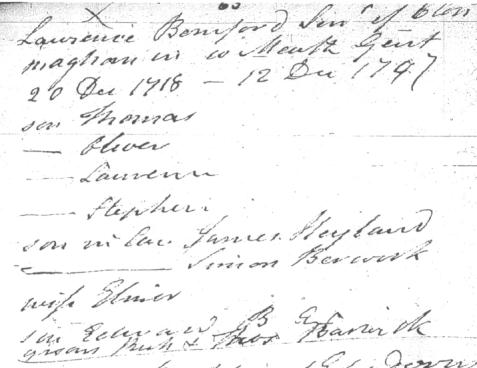 Lawrence Bomford Senr of Clon
maghan in co Meath Gent
20 Dec 1718 — 12 Dec 1747
son Thomas
— Oliver
— Laurence
— Stephen
son in law James Heyland
— Simon Berwick
wife Elinor
son Edward
B E
grsons Rich & Thos Barwick